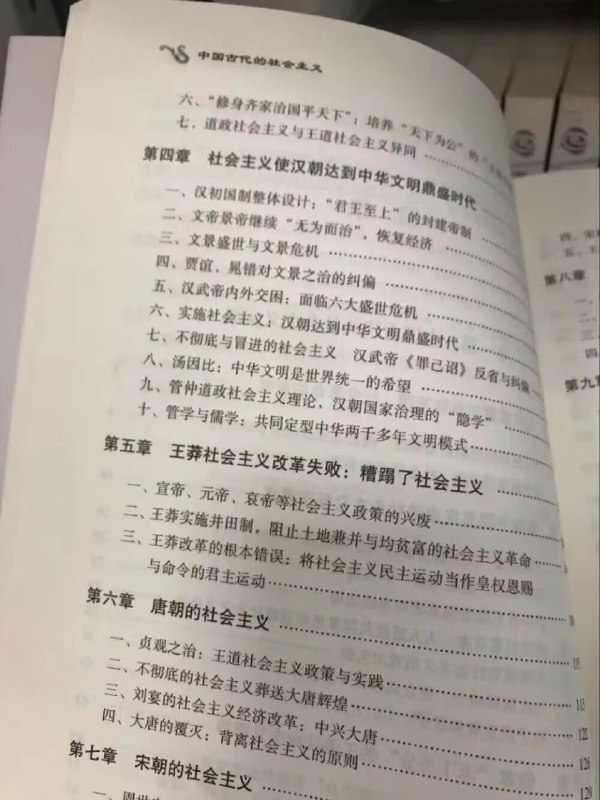 中国古代的社会主义
六、“修身齐家治国平天下”：培养“天下为公”的“
七、道政社会主义与王道社会主义异同
第四章 社会主义使汉朝达到中华文明鼎盛时代
一、汉初国制整体设计：“君王至上”的封建帝制
二、文帝景帝继续“无为而治”，恢复经济
三、文景盛世与文景危机
四、贾谊、晁错对文景之治的纠偏
五、汉武帝内外交困：面临六大盛世危机
六、实施社会主义：汉朝达到中华文明鼎盛时代
七、不彻底与冒进的社会主义 汉武帝《罪己诏》反省与纠偏
八、汤因比：中华文明是世界统一的希望
九、管仲道政社会主义理论，汉朝国家治理的“隐学”
十、管学与儒学：共同定型中华两千多年文明模式
第五章 王莽社会主义改革失败：糟蹋了社会主义
一、宣帝、元帝、哀帝等社会主义政策的兴废
二、王莽实施井田制，阻止土地兼并与均贫富的社会主义革命
三、王莽改革的根本错误：将社会主义民主运动当作皇权恩赐
与命令的君主运动
第六章 唐朝的社会主义 115
一、贞观之治：王道社会主义政策与实践 115
二、不彻底的社会主义葬送大唐辉煌
三、刘宴的社会主义经济改革：中兴大唐 122
四、大唐的覆灭：背离社会主义的原则 126
第七章 宋朝的社会主义 129
四、宋
五、王
第八章
一、
二、
三、
四
第九章